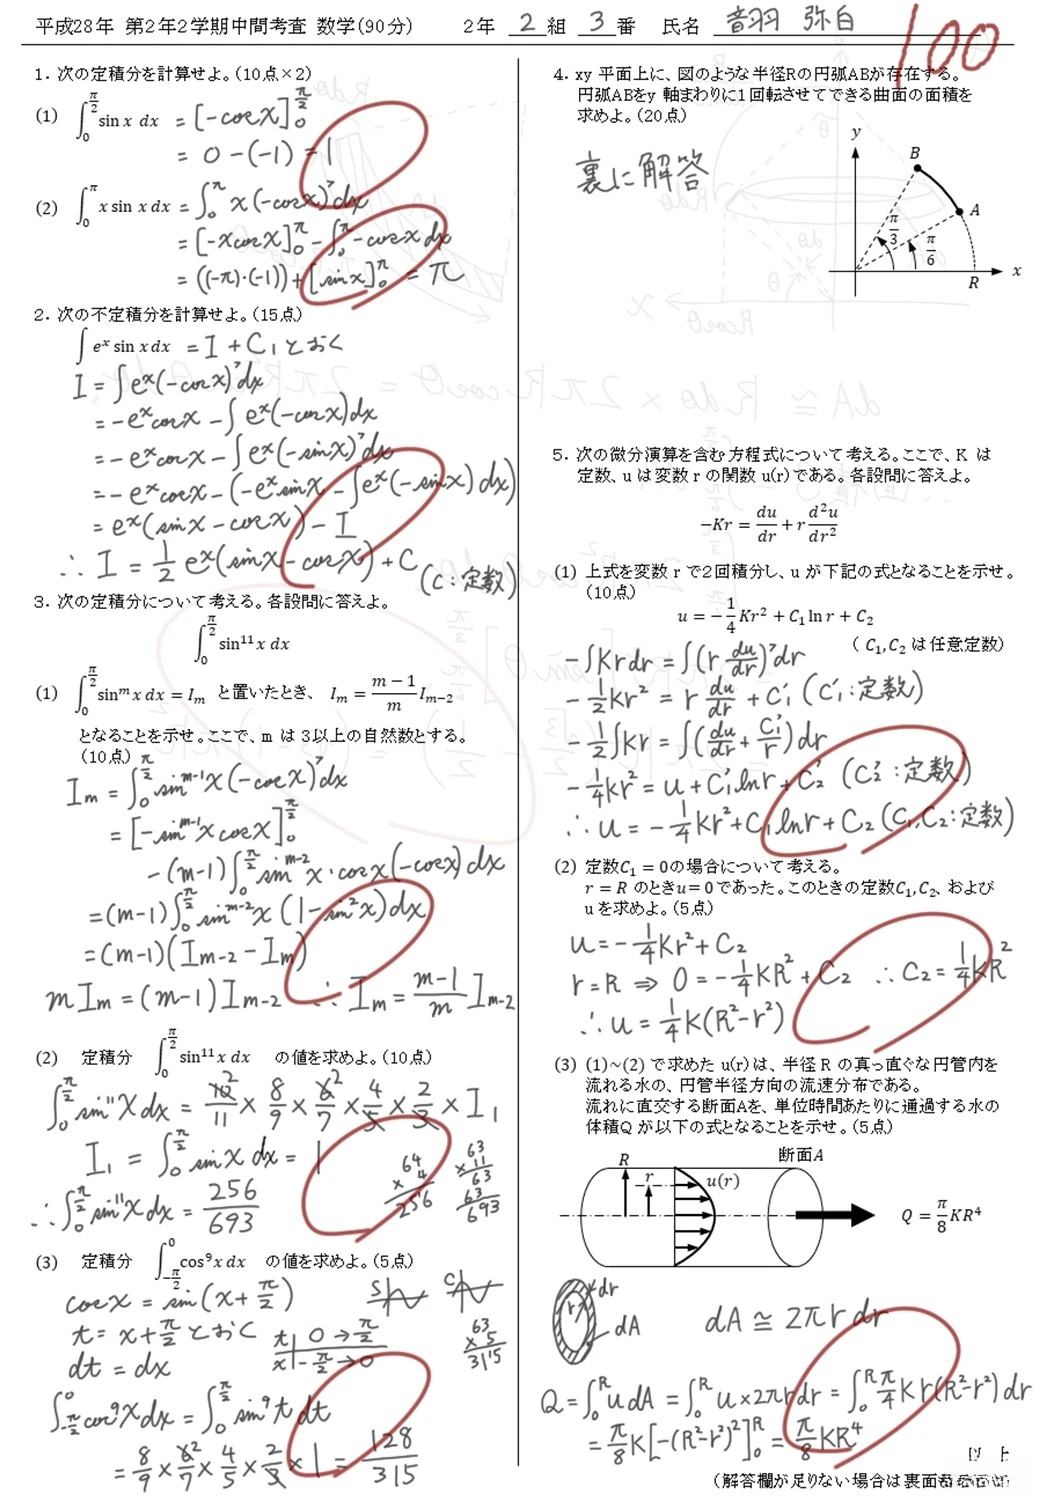 平成28年 第2年2学期中間考査 数学(90分) 2年 2 組 3 番 氏名 音羽 弥白
100
1. 次の定積分を計算せよ。(10点×2)
(1) ∫_0^{π/2} sin x dx = [-cos x]_0^{π/2}
= 0-(-1) = 1
(2) ∫_0^π x sin x dx = ∫_0^π x(-cos x)' dx
= [-x cos x]_0^π - ∫_0^π -cos x dx
= ((-π)・(-1)) + [sin x]_0^π = π
2. 次の不定積分を計算せよ。(15点)
∫ e^x sin x dx = I + C_1 とおく
I = ∫ e^x(-cos x)' dx
= -e^x cos x - ∫ e^x(-cos x) dx
= -e^x cos x - ∫ e^x(-sin x)' dx
= -e^x cos x - (-e^x sin x - ∫ e^x(-sin x) dx)
= e^x(sin x - cos x) - I
∴ I = 1/2 e^x(sin x - cos x) + C (C:定数)
3. 次の定積分について考える。各設問に答えよ。
∫_0^{π/2} sin^{11} x dx
(1) ∫_0^{π/2} sin^m x dx = I_m と置いたとき、 I_m = (m-1)/m I_{m-2}
となることを示せ。ここで、m は3以上の自然数とする。
(10点)
I_m = ∫_0^{π/2} sin^{m-1} x (-cos x)' dx
= [-sin^{m-1} x cos x]_0^{π/2}
-(m-1) ∫_0^{π/2} sin^{m-2} x・cos x (-cos x) dx
= (m-1) ∫_0^{π/2} sin^{m-2} x (1-sin^2 x) dx
= (m-1)(I_{m-2} - I_m)
m I_m = (m-1) I_{m-2} ∴ I_m = (m-1)/m I_{m-2}
(2) 定積分 ∫_0^{π/2} sin^{11} x dx の値を求めよ。(10点)
∫_0^{π/2} sin^{11} x dx = 10/11 × 8/9 × 6/7 × 4/5 × 2/3 × I_1
2 2
I_1 = ∫_0^{π/2} sin x dx = 1
∴ ∫_0^{π/2} sin^{11} x dx = 256/693
64
× 4
256
63
× 11
63
63
693
(3) 定積分 ∫_{-π/2}^0 cos^9 x dx の値を求めよ。(5点)
cos x = sin(x + π/2)
t = x + π/2 とおく
dt = dx
t | 0 → π/2
x | -π/2 → 0
S C
63
× 5
315
∫_{-π/2}^0 cos^9 x dx = ∫_0^{π/2} sin^9 t dt
= 8/9 × 6/7 × 4/5 × 2/3 × 1 = 128/315
2
4. xy 平面上に、図のような半径Rの円弧ABが存在する。
円弧ABをy 軸まわりに1回転させてできる曲面の面積を
求めよ。(20点)
裏に解答
y
B
A
π/3
π/6
R
x
5. 次の微分演算を含む方程式について考える。ここで、K は
定数、u は変数 r の関数 u(r)である。各設問に答えよ。
-Kr = du/dr + r d²u/dr²
(1) 上式を変数 r で2回積分し、u が下記の式となることを示せ。
(10点)
u = -1/4 Kr² + C_1 ln r + C_2
( C_1, C_2 は任意定数)
-∫Kr dr = ∫(r du/dr)' dr
-1/2 Kr² = r du/dr + C_1' (C_1':定数)
-1/2 ∫Kr = ∫(du/dr + C_1'/r) dr
-1/4 Kr² = u + C_1' ln r + C_2' (C_2':定数)
∴ u = -1/4 Kr² + C_1 ln r + C_2 (C_1, C_2:定数)
(2) 定数C_1 = 0の場合について考える。
r = R のときu = 0であった。このときの定数C_1, C_2、および
u を求めよ。(5点)
u = -1/4 Kr² + C_2
r = R ⇒ 0 = -1/4 KR² + C_2 ∴ C_2 = 1/4 KR²
∴ u = 1/4 K(R²-r²)
(3) (1)~(2) で求めた u(r)は、半径 R の真っ直ぐな円管内を
流れる水の、円管半径方向の流速分布である。
流れに直交する断面Aを、単位時間あたりに通過する水の
体積Q が以下の式となることを示せ。(5点)
断面A
R
r
u(r)
Q = π/8 KR⁴
r
dr
dA
dA ≅ 2πr dr
Q = ∫_0^R u dA = ∫_0^R u×2πr dr = ∫_0^R π/4 K r(R²-r²) dr
= π/8 K[-(R²-r²)²]_0^R = π/8 KR⁴
以 上
(解答欄が足りない場合は裏面